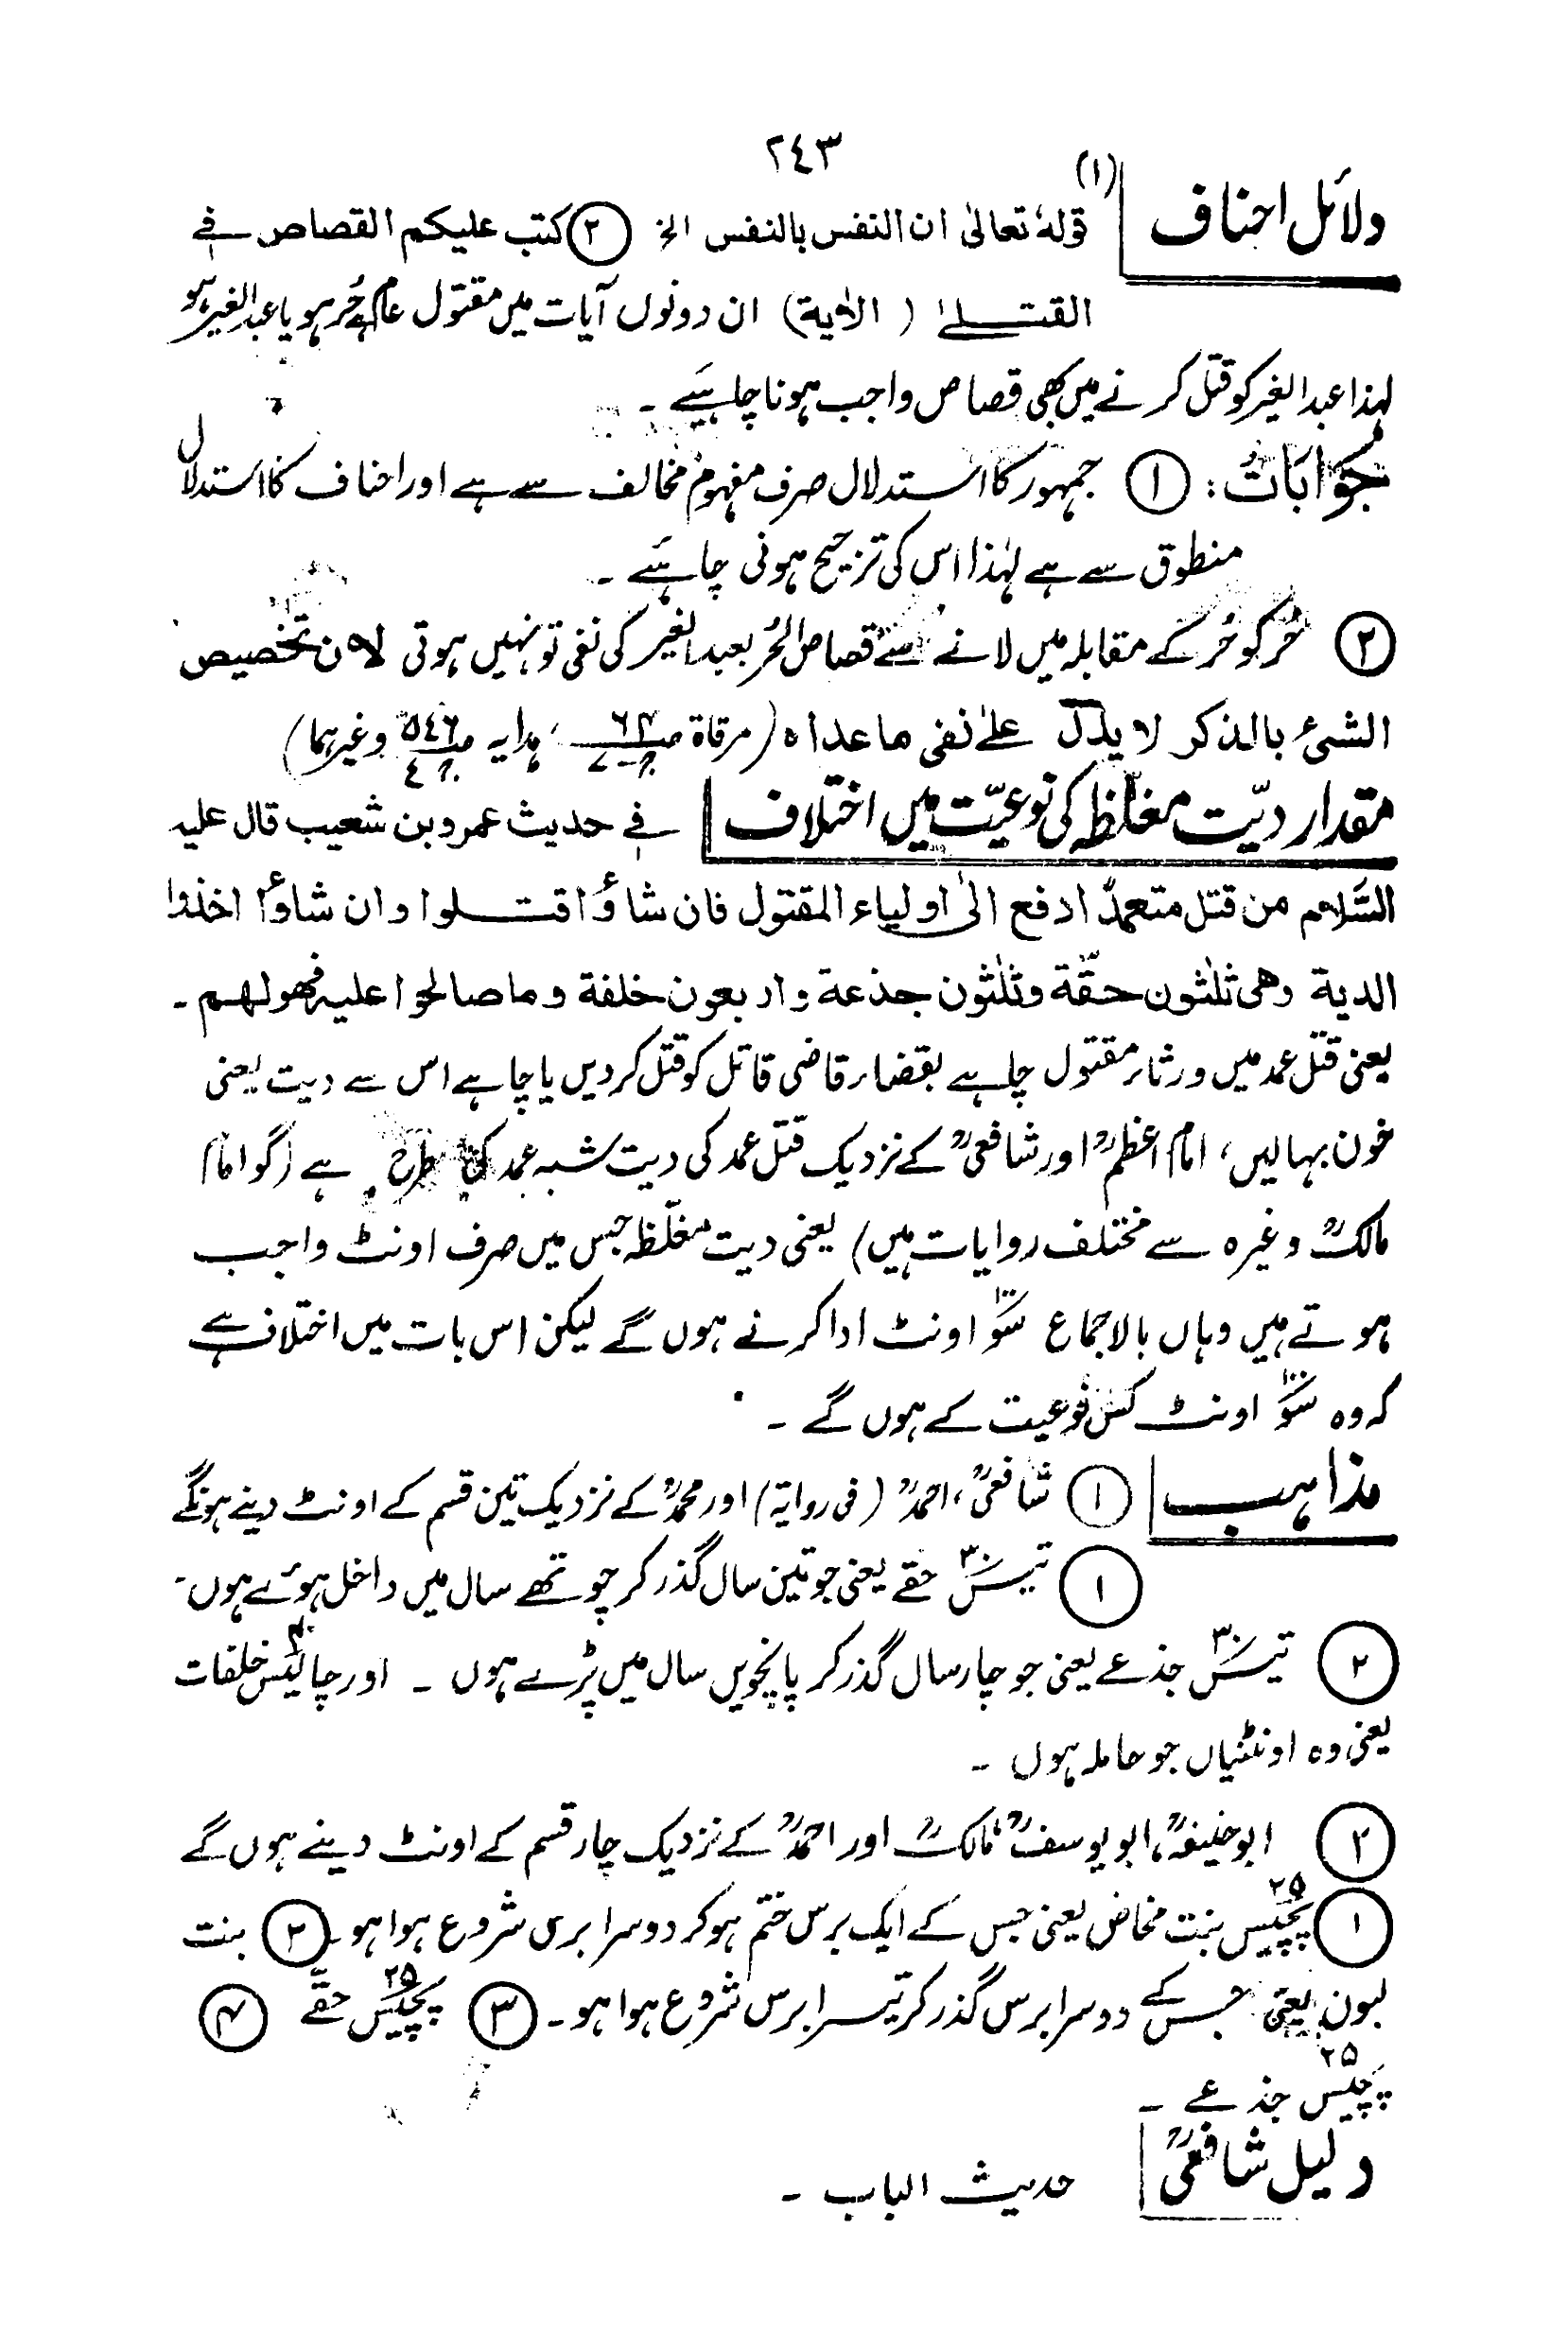 ٢٤٣
دلائل احناف (۱) قولہٗ تعالیٰ ان النفس بالنفس الخ (۲) کتب علیکم القصاص فی
القتلیٰ (الاٰیة) ان دونوں آیات میں مقتول عام ہے حُر ہو یا عبد الغیر ہو
لہذا عبد الغیر کو قتل کرنے میں بھی قصاص واجب ہونا چاہیئے ۔
جوَابَات : (۱) جمہور کا استدلال صرف مفہوم مخالف سے ہے اور احناف کا استدلال
منطوق سے ہے لہٰذا اس کی ترجیح ہونی چاہئیے ۔
(۲) حُر کو حُر کے مقابلہ میں لانے سے قصاص الحُر بعبد الغیر کی نفی تو نہیں ہوتی لان تخصیص
الشیٔ بالذکر لا یدل علیٰ نفی ما عداہ (مرقاة ، ہدایہ وغیرہما)
مقدار دیّت مغلّظہ کی نوعیّت میں اختلاف فی حدیث عمرو بن شعیب قال علیہ
السّلام من قتل متعمدًا دفع الیٰ اولیاء المقتول فان شاؤا قتلوا وان شاؤا اخذوا
الدیة وھی ثلٰثون حقّة وثلٰثون جذعة واربعون خلفة وما صالحوا علیہ فھو لھم ۔
یعنی قتل عمد میں ورثاء مقتول چاہے بقضاء قاضی قاتل کو قتل کر دیں یا چاہے اس سے دیت یعنی
خون بہا لیں، امام اعظمؒ اور شافعیؒ کے نزدیک قتل عمد کی دیت شبہ عمد کی طرح ہے (گو امام
مالکؒ وغیرہ سے مختلف روایات ہیں) یعنی دیت مغلّظہ جس میں صرف اونٹ واجب
ہوتے ہیں وہاں بالاجماع سَو ۱۰۰ اونٹ ادا کرنے ہوں گے لیکن اس بات میں اختلاف ہے
کہ وہ سَو ۱۰۰ اونٹ کس نوعیت کے ہوں گے ۔
مذاہب (۱) شافعیؒ، احمدؒ (فی روایة) اور محمدؒ کے نزدیک تین قسم کے اونٹ دینے ہونگے
(۱) تیس ۳۰ حقے یعنی جو تین سال گذر کر چوتھے سال میں داخل ہوئے ہوں ۔
(۲) تیس ۳۰ جذعے یعنی جو چار سال گذر کر پانچویں سال میں پڑے ہوں ۔ اور چالیس ۴۰ خلفات
یعنی وہ اونٹنیاں جو حاملہ ہوں ۔
(۲) ابو حنیفہؒ، ابو یوسفؒ، مالکؒ اور احمدؒ کے نزدیک چار قسم کے اونٹ دینے ہوں گے
(۱) پچیس ۲۵ بنت مخاض یعنی جس کے ایک برس ختم ہو کر دوسرا برس شروع ہوا ہو ۔ (۲) بنت
لبون یعنی جس کے دوسرا برس گذر کر تیسرا برس شروع ہوا ہو ۔ (۳) پچیس ۲۵ حقّے (۴)
پچیس ۲۵ جذعے ۔
دلیل شافعیؒ حدیث الباب ۔